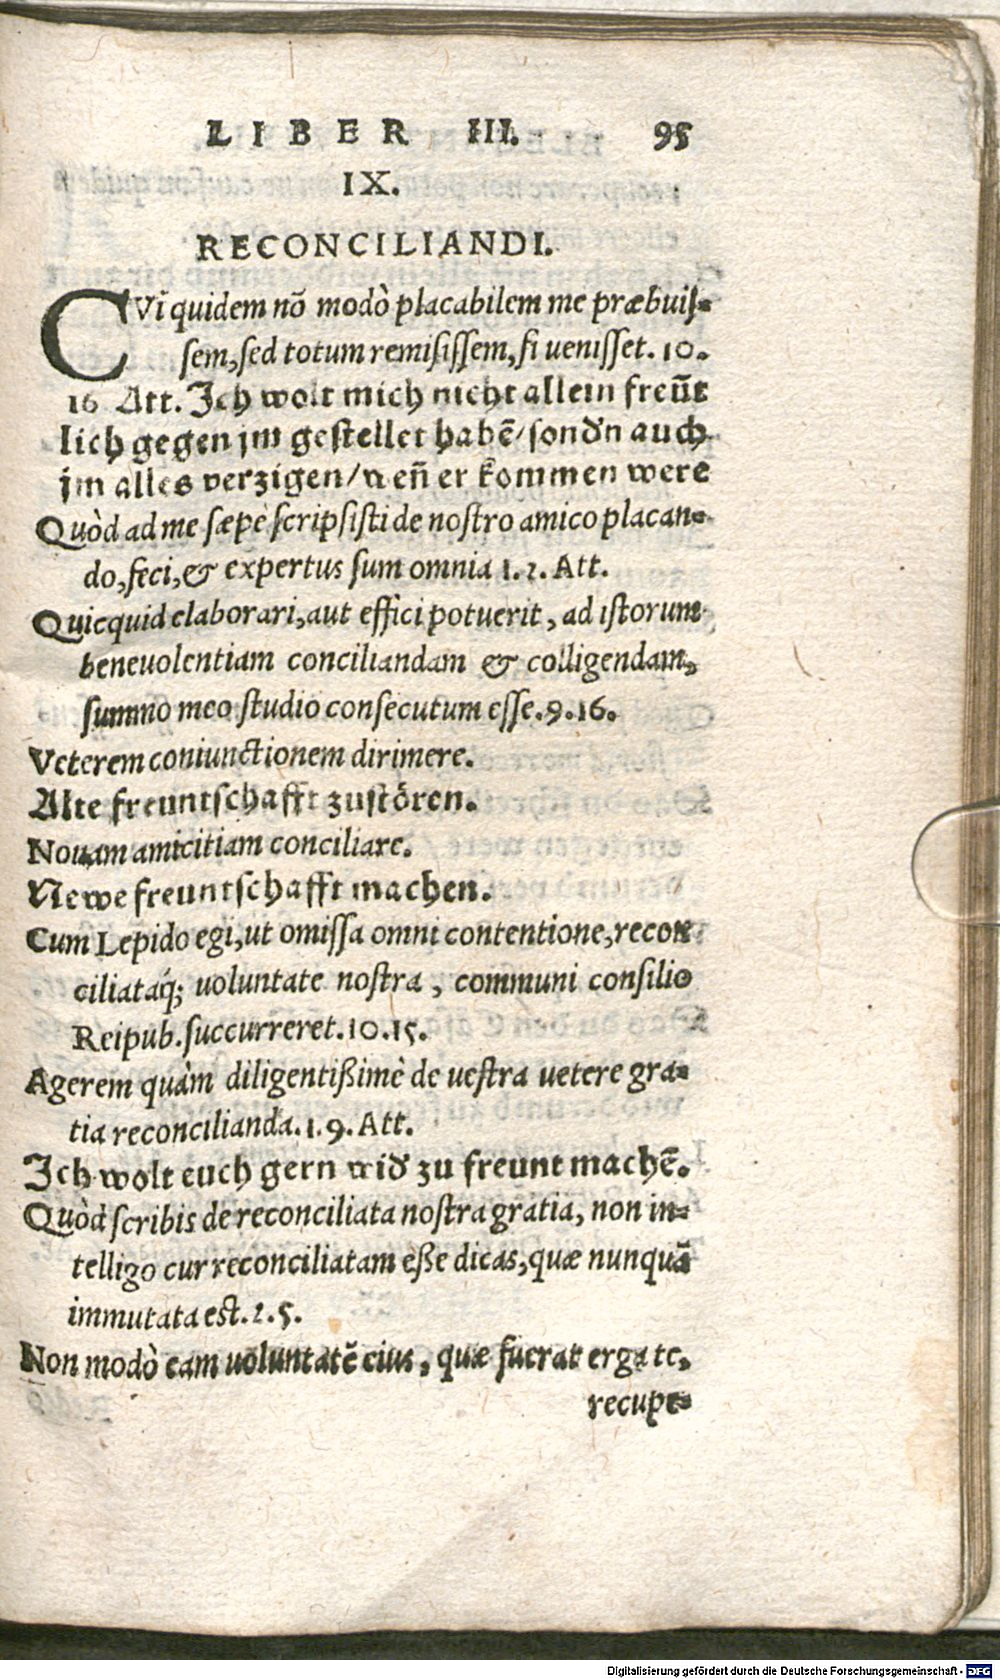 LIBER III. 95
IX.
RECONCILIANDI.
CVi quidem nō modò placabilem me præbuiſ-
ſem, ſed totum remiſiſſem, ſi ueniſſet. 10.
16 Att. Ich wolt mich nicht allein freūt
lich gegen jm geſtellet habē/ ſond'n auch
jm alles verzigen/ weñ er kommen were
Quòd ad me ſæpe ſcripſiſti de noſtro amico placan-
do, feci, & expertus ſum omnia 1. 2. Att.
Quicquid elaborari, aut effici potuerit, ad iſtorum
beneuolentiam conciliandam & colligendam,
ſummo meo ſtudio conſecutum eſſe. 9. 16.
Veterem coniunctionem dirimere.
Alte freuntſchafft zuſtören.
Nouam amicitiam conciliare.
Newe freuntſchafft machen.
Cum Lepido egi, ut omiſſa omni contentione, recon
ciliataq́; uoluntate noſtra, communi conſilio
Reipub. ſuccurreret. 10. 15.
Agerem quàm diligentißimè de ueſtra uetere gra-
tia reconcilianda. 1. 9. Att.
Ich wolt euch gern wid' zu freunt machē.
Quòd ſcribis de reconciliata noſtra gratia, non in-
telligo cur reconciliatam eße dicas, quæ nunquā
immutata eſt. 2. 5.
Non modò eam uoluntatē eius, quæ fuerat erga te,
recupe-
Digitalisierung gefördert durch die Deutsche Forschungsgemeinschaft - DFG